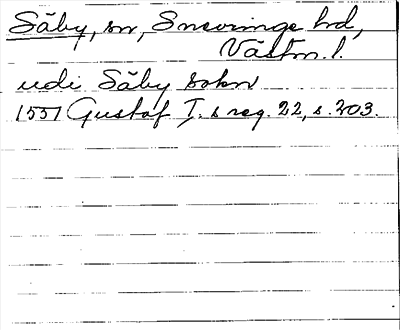 Säby, sn, Snevringe hd,
Västm. l.
udi Säby sokn
1551 Gustaf I. s reg. 22, s. 203.